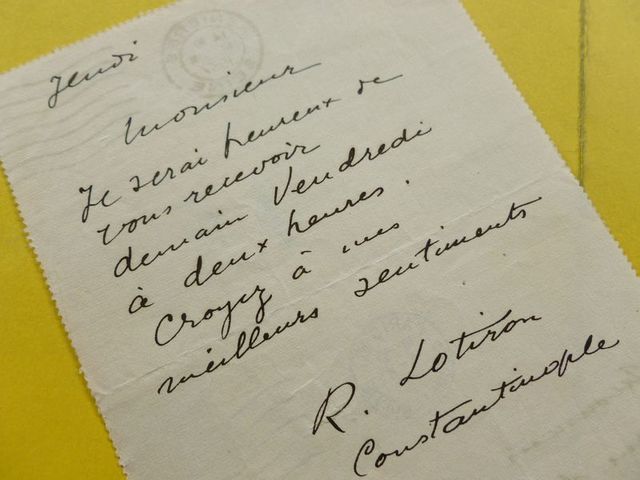 Jeudi
Monsieur
Je serai heureux de
vous recevoir
demain Vendredi
à deux heures.
Croyez à mes
meilleurs sentiments
R. Lotiron
Constantinople